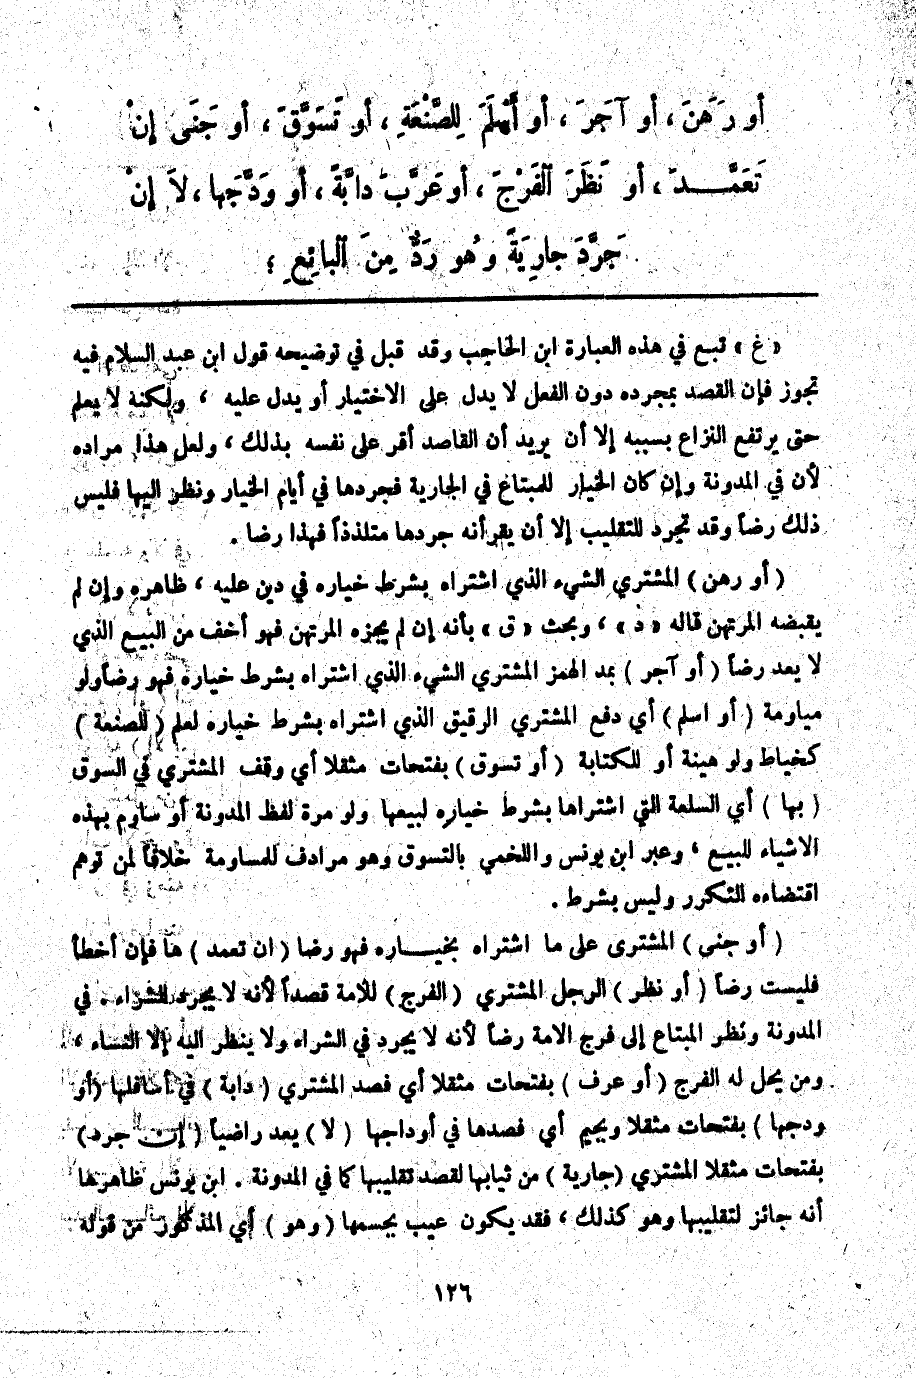 أو رَهَنَ ، أو آجَرَ ، أو أَسْلَمَ لِلصَّنْعَةِ ، أو تَسَوَّقَ ، أو جَنَى إِنْ
تَعَمَّــدَ ، أو نَظَرَ ٱلفَرْجَ ، أو عَرَّبَ دابَّةً ، أو وَدَّجَها ، لاَ إِنْ
جَرَّدَ جارِيَةً وهُو رَدٌّ مِنَ ٱلبائِعِ ؛
« غ » تبع في هذه العبارة ابن الحاجب وقد قبل في توضيحه قول ابن عبد السلام فيه
تجوز فإن القصد بمجرده دون الفعل لا يدل على الاختيار أو يدل عليه ، ولكنه لا يعلم
حتى يرتفع النزاع بسببه إلا أن يريد أن القاصد أقر على نفسه بذلك ، ولعل هذا مراده
لأن في المدونة وإن كان الخيار للمبتاع في الجارية فجردها في أيام الخيار ونظر اليها فليس
ذلك رضاً وقد تجرد للتقليب إلا أن يقر أنه جردها متلذذاً فهذا رضا .
( أو رهن ) المشتري الشيء الذي اشتراه بشرط خياره في دين عليه ، ظاهره وإن لم
يقبضه المرتهن قاله « ذ » ، وبحث « ق » بأنه إن لم يجزه المرتهن فهو أخف من البيع الذي
لا يعد رضاً ( أو آجر ) بمد الهمز المشتري الشيء الذي اشتراه بشرط خياره فهو رضاً ولو
مياومة ( أو اسلم ) أي دفع المشتري الرقيق الذي اشتراه بشرط خياره لعلم ( للصنعة )
كخياط ولو هينة أو للكتابة ( أو تسوق ) بفتحات مثقلا أي وقف المشتري في السوق
( بها ) أي السلعة التي اشتراها بشرط خياره لبيعها ولو مرة لفظ المدونة أو ساوم بهذه
الاشياء للبيع ، وعبر ابن يونس واللخمي بالتسوق وهو مرادف للمساومة خلافاً لمن توهم
اقتضاءه التكرر وليس بشرط .
( أو جنى ) المشترى على ما اشتراه بخيــاره فهو رضا ( ان تعمد ) ها فإن أخطأ
فليست رضاً ( أو نظر ) الرجل المشتري ( الفرج ) للأمة قصداً لأنه لا يجرد للشراء . في
المدونة ونظر المبتاع إلى فرج الامة رضاً لأنه لا يجرد في الشراء ولا ينظر اليه إلا النساء ،
ومن يحل له الفرج ( أو عرف ) بفتحات مثقلا أي فصد المشتري ( دابة ) في أسافلها ( أو
ودجها ) بفتحات مثقلا وبجيم أي فصدها في أوداجها ( لا ) يعد راضياً ( إن جرد )
بفتحات مثقلا المشتري ( جارية ) من ثيابها لقصد تقليبها كما في المدونة . ابن يونس ظاهرها
أنه جائز لتقليبها وهو كذلك ، فقد يكون عيب بجسمها ( وهو ) أي المذكور من قوله
١٢٦